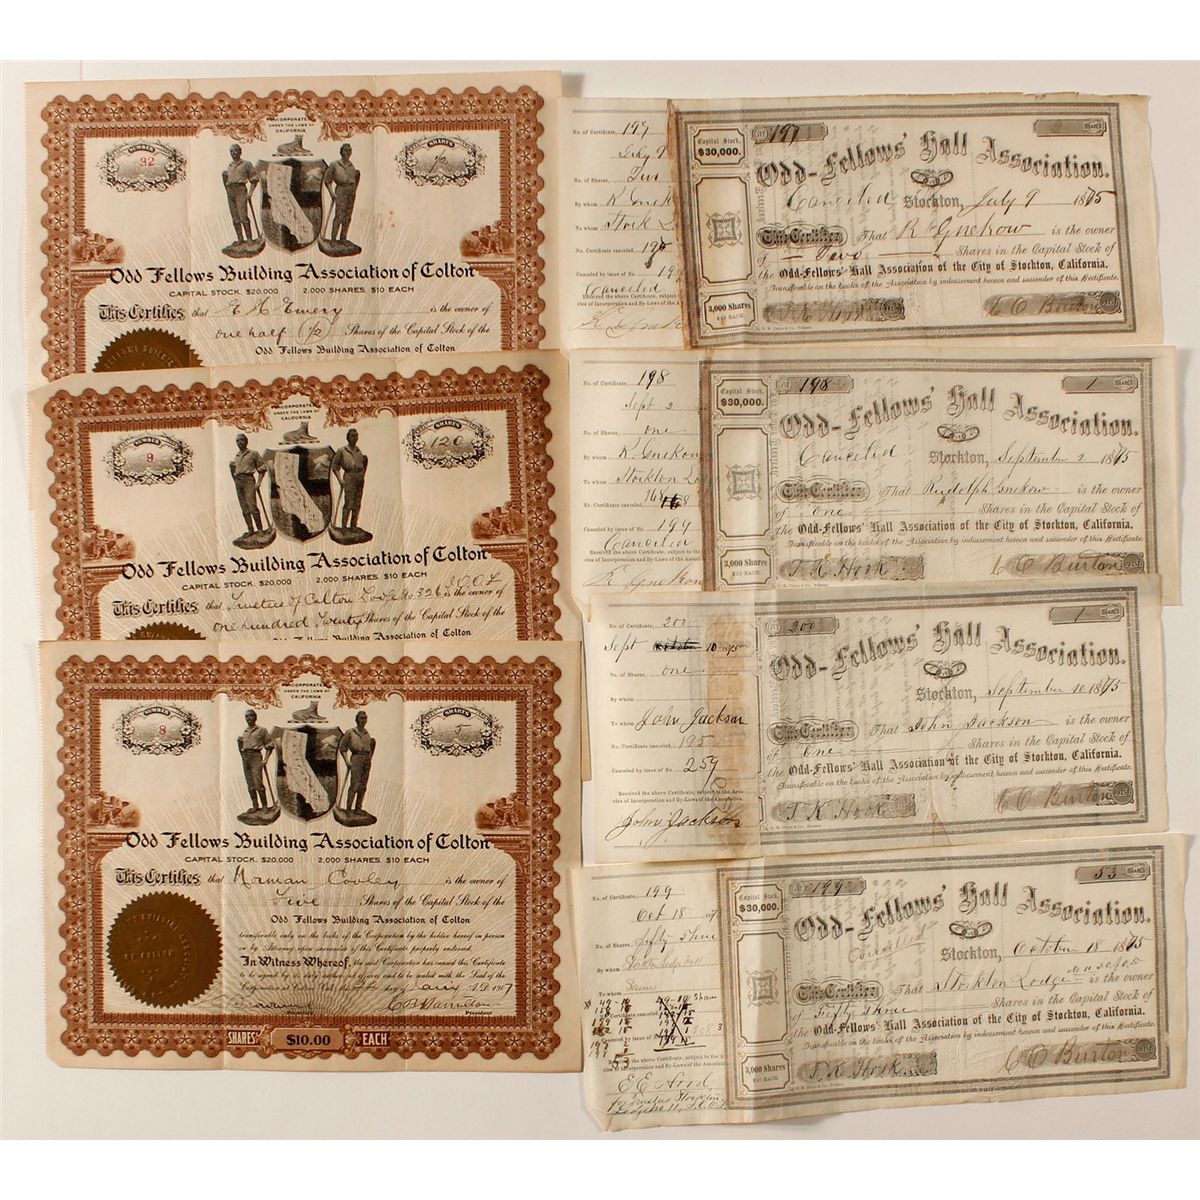 INCORPORATED
UNDER THE LAWS OF
CALIFORNIA
NUMBER
32
SHARES
1/2
Odd Fellows Building Association of Colton
CAPITAL STOCK. $20,000 2,000 SHARES. $10 EACH
This Certifies that E H Emery is the owner of
one half (1/2) Shares of the Capital Stock of the
Odd Fellows Building Association of Colton
INCORPORATED
UNDER THE LAWS OF
CALIFORNIA
NUMBER
9
SHARES
120
Odd Fellows Building Association of Colton
CAPITAL STOCK. $20,000 2,000 SHARES. $10 EACH
This Certifies that Trustees of Colton Lodge No 326 I.O.O.F. is the owner of
one hundred Twenty Shares of the Capital Stock of the
Odd Fellows Building Association of Colton
INCORPORATED
UNDER THE LAWS OF
CALIFORNIA
NUMBER
8
SHARES
5
Odd Fellows Building Association of Colton
CAPITAL STOCK. $20,000 2,000 SHARES. $10 EACH
This Certifies that Norman Cooley is the owner of
Five Shares of the Capital Stock of the
Odd Fellows Building Association of Colton
transferable only on the books of the Corporation by the holder hereof in person
or by Attorney upon surrender of this Certificate properly endorsed.
In Witness Whereof, the said Corporation has caused this Certificate
to be signed by its duly authorized officers and to be sealed with the Seal of the
Corporation at Colton Cal. this day of Jany A.D. 1907
C B Hamilton
Secretary President
SHARES $10.00 EACH
No. of Certificate, 197
July 9
No. of Shares, Two
By whom R Gnekow
To whom Stock
No. Certificate canceled,
Canceled by issue of No. 19
Canceled
Received the above Certificate, subject
of Incorporation and By-Laws of the
Capital Stock,
$30,000.
3,000 Shares
$10 EACH.
No. 197
SHARES
Odd-Fellows' Hall Association.
Canceled Stockton, July 9 1875
This Certifies That R Gnekow is the owner
of Two Shares in the Capital Stock of
the Odd-Fellows' Hall Association of the City of Stockton, California.
Transferable on the books of the Association by indorsement hereon and surrender of this Certificate.
T. K. Hook C O Burton
No. of Certificate, 198
Sept 2
No. of Shares, one
By whom R. Gnekow
To whom Stockton
No. Certificate canceled,
Canceled by issue of No. 199
Canceled
Received the above Certificate, subject to the
of Incorporation and By-Laws of the
R Gnekow
Capital Stock,
$30,000.
3,000 Shares
$10 EACH.
No. 198
1 SHARES
Odd-Fellows' Hall Association.
Canceled Stockton, September 2 1875
This Certifies That Rudolph Gnekow is the owner
of One Shares in the Capital Stock of
the Odd-Fellows' Hall Association of the City of Stockton, California.
Transferable on the books of the Association by indorsement hereon and surrender of this Certificate.
T. K. Hook C O Burton
No. of Certificate, 200
Sept October 10 1875
No. of Shares, one
By whom
To whom John Jackson
No. Certificate canceled, 195
Canceled by issue of No. 257
Received the above Certificate, subject to the Arti-
cles of Incorporation and By-Laws of the Association.
John Jackson
No. 200
1 SHARES
Odd-Fellows' Hall Association.
Stockton, September 10 1875
This Certifies That John Jackson is the owner
of One Shares in the Capital Stock of
the Odd-Fellows' Hall Association of the City of Stockton, California.
Transferable on the books of the Association by indorsement hereon and surrender of this Certificate.
T. K. Hook C O Burton
No. of Certificate, 199
Oct 18
No. of Shares, fifty three
By whom
To whom Same
Canceled by issue of No.
53
Received the above Certificate, subject to the
cles of Incorporation and By-Laws of the Association.
E E Hood
for Trustees Stockton
Lodge No 11, I.O.O.F.
Capital Stock,
$30,000.
3,000 Shares
$10 EACH.
No. 199
53 SHARES
Odd-Fellows' Hall Association.
Canceled Stockton, October 18 1875
This Certifies That Stockton Lodge No 11 I.O.O.F. is the owner
of Fifty Three Shares in the Capital Stock of
the Odd-Fellows' Hall Association of the City of Stockton, California.
Transferable on the books of the Association by indorsement hereon and surrender of this Certificate.
T. K. Hook C O Burton